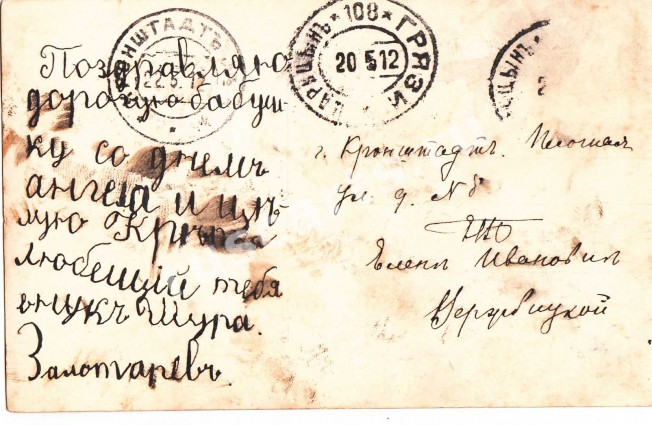 КРОНШТАДТЪ
22.5.12
ЦАРИЦЫНЪ * 108 * ГРЯЗИ
20 5 12
Поздравляю
дорогую бабуш
ку со днемъ
ангела и цѣ-
лую Крѣпко
любещiй тебя
внукъ Шура.
Золотаревъ.
г. Кронштадтъ.
ул. д. № 8
ЕВ
Елене Ивановне
Вербицкой